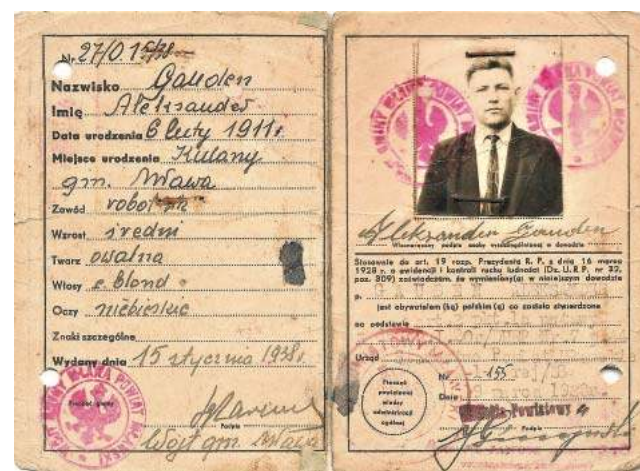 Nr. 27/0.
Nazwisko Gauden
Imię Aleksander
Data urodzenia 6 luty 1911 r.
Miejsce urodzenia Kulany
gm. Wawa
Zawód robotnik
Wzrost średni
Twarz owalna
Włosy c. blond
Oczy niebieskie
Znaki szczególne
Wydany dnia 15 stycznia 1938 r.
Pieczęć gminy
Podpis
Wójt gm. Wawa
Aleksander Gauden
Własnoręczny podpis osoby wyszczególnionej w dowodzie
Stosownie do art. 19 rozp. Prezydenta R. P. z dnia 16 marca
1928 r. o ewidencji i kontroli ruchu ludności (Dz. U. R. P. nr 32,
poz. 309) zaświadczam, że wymieniony(a) w niniejszym dowodzie
p.
jest obywatelem (ką) polskim (ą) co zostało stwierdzone
na podstawie
Urząd
Nr. 155
Data
Pieczęć
powiatowej
władzy
administracji
ogólnej
Podpis